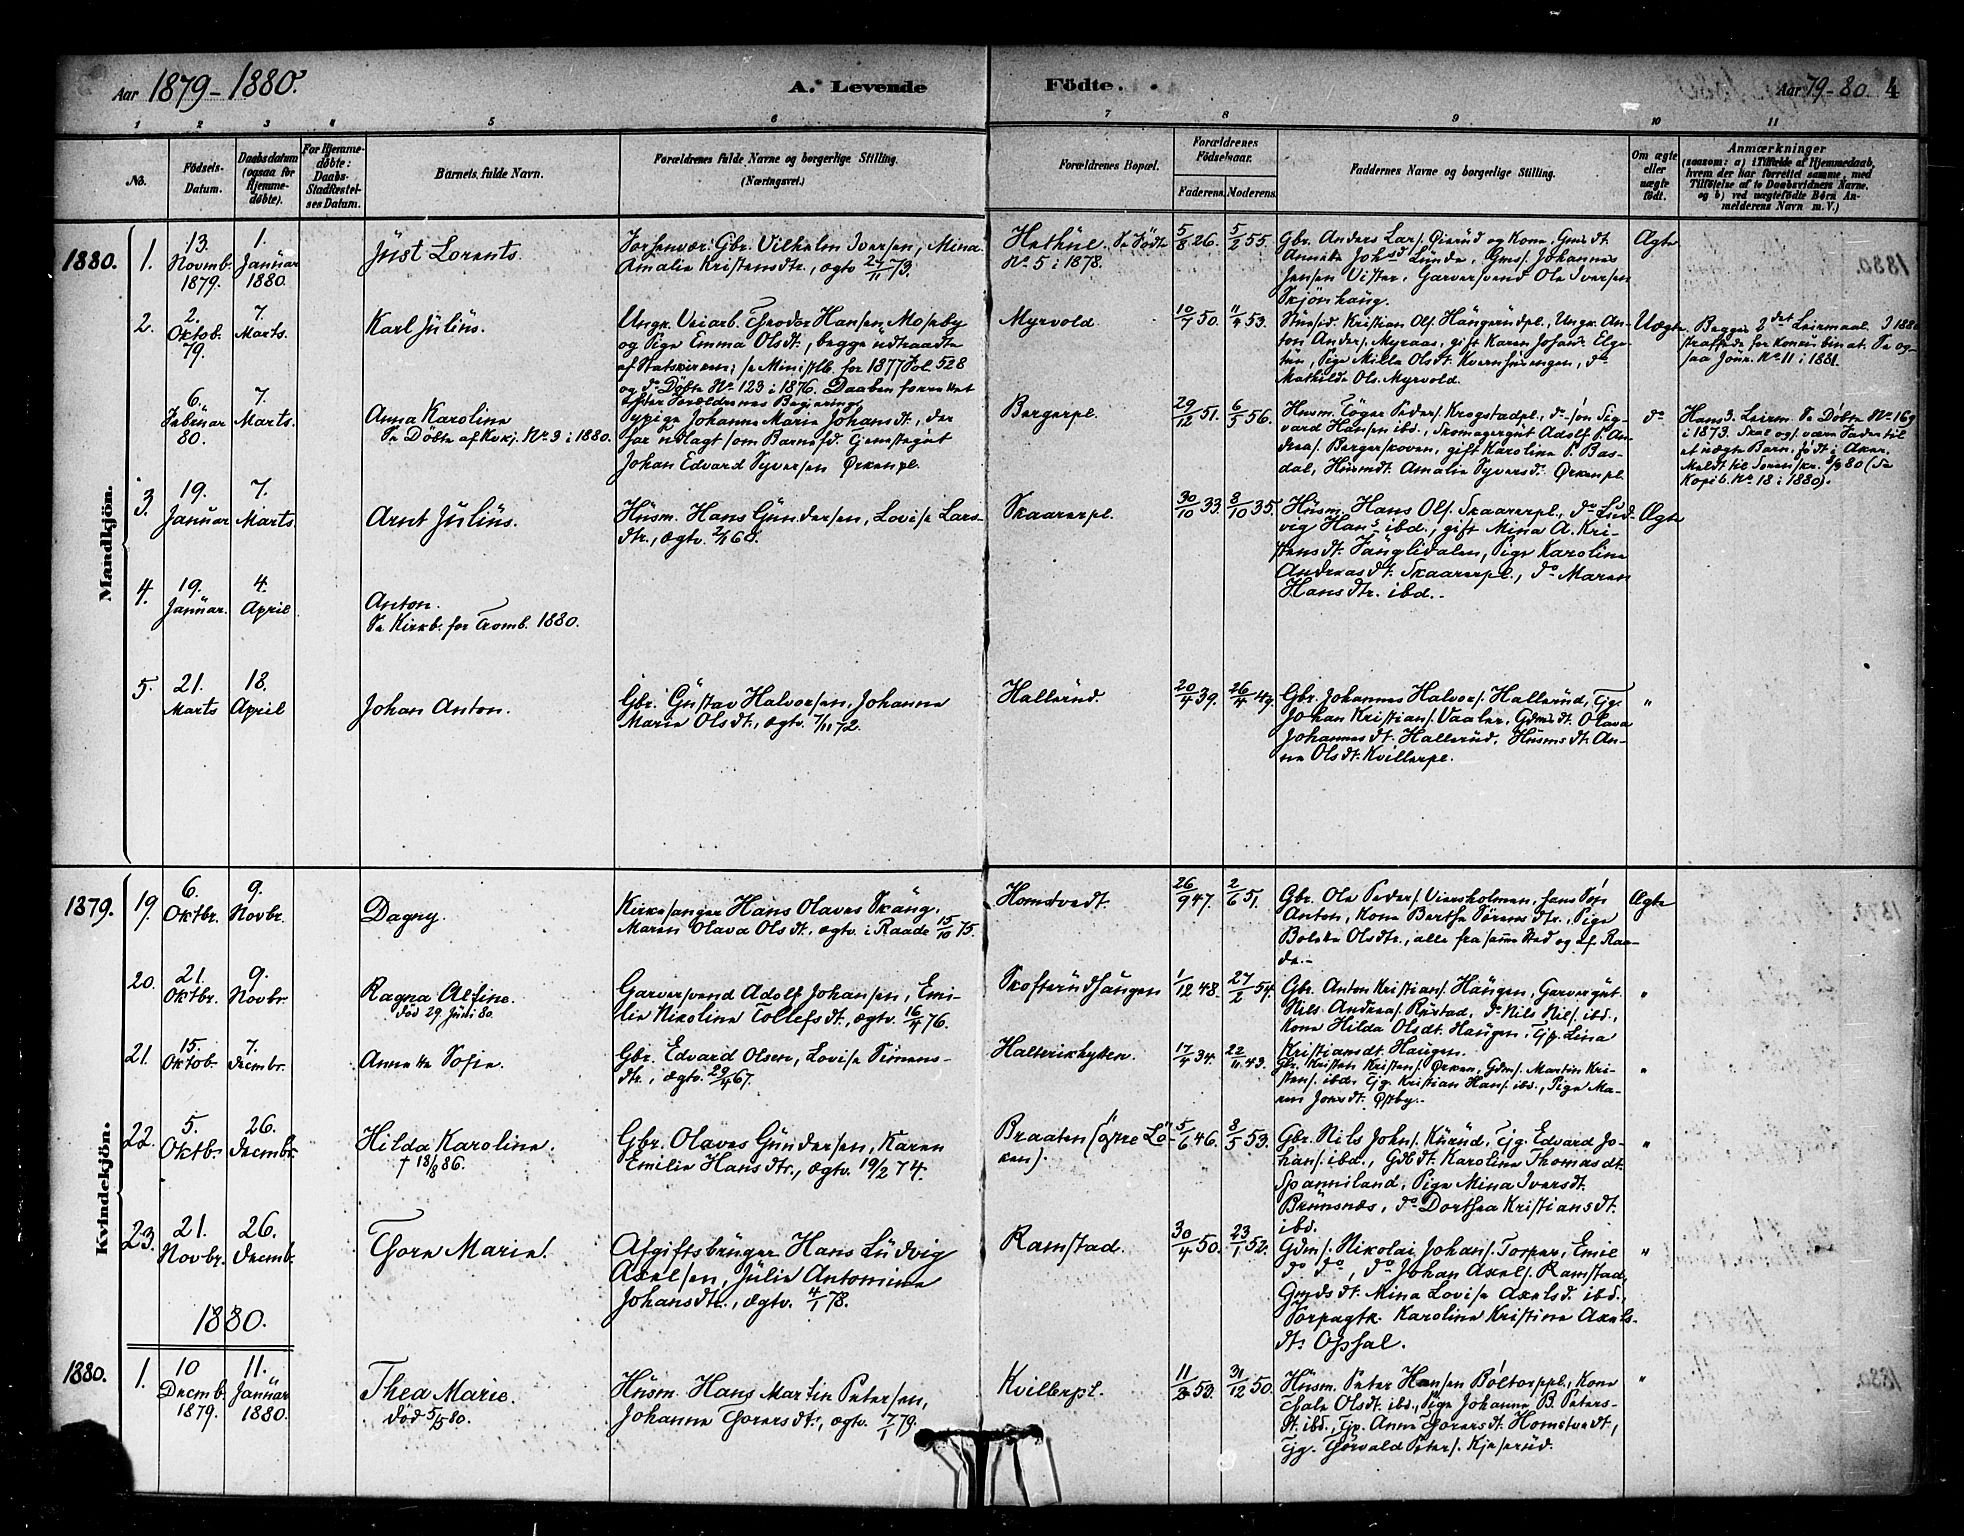 Aar 1879-1880.
A. Levende
Födte.
Aar 79-80. 4
1 2 3 4 5 6 7 8 9 10 11
No.
Födsels-
Datum.
Daabsdatum
(ogsaa for
Hjemme-
döbte).
For Hjemme-
döbte:
Daabs-
Stadfæstel-
ses Datum.
Barnets fulde Navn.
Forældrenes fulde Navne og borgerlige Stilling.
(Næringsvei.)
Forældrenes Bopæl.
Forældrenes
Födselsaar.
Faderens. Moderens.
Faddernes Navne og borgerlige Stilling.
Om ægte
eller
uægte
födt.
Anmærkninger
(saasom: a) i Tilfælde af Hjemmedaab,
hvem der har forrettet samme, med
Tilföielse af to Daabsvidners Navne.
og b) ved uægtefödte Börn An-
melderens Navn m. V.)
Mandkjön.
1880. 1.
13.
Novmb.
1879.
1.
Januar
1880.
Just Lorents.
Gbr. Vilhelm Iversen, Mina
Amalie Kristensdtr., ægtv. 27/11 73.
Hethul. Se Födte
No 5 i 1878.
5/8 26. 5/2 55.
Gbr. Anders Lars. Öierud og Kone, Gms dt.
Annette Johsd Lunde, Gms. Johannes
Jensen Vister, Garversvend Ole Iversen
Skjönhaug.
Ægte
2.
2.
Oktob.
79.
7.
Marts.
Karl Julius.
Ungk. Veiarb. Theodor Hansen Moseby
og Pige Emma Olsdt., begge udtraadte
af Statskirken; se Ministlb. for 1877 Fol. 528
og do Döbte No 123 i 1876. Daaben forrettet
efter Forældrenes Begjæring.
Myrvold.
10/7 50. 11/4 53.
Kristian Ols. Haugerudpl., Ungk. An-
ton Anders. Myraas, gift Karen Johand. Elge-
tun, Pige Milla Olsdt. Kvernhusengen, do
Mathilde Ols. Myrvold.
Uægte
Begges 2det Leirmaal. I 188
straffede for Konkubinat. Se og-
saa Jour. No 11 i 1881.
6.
Februar
80.
7.
Marts.
Anna Karoline
Se Döbte af Kvkj. No 3 i 1880.
Sypige Johanne Marie Johansdt., der
har udlagt som Barnefd. Tjenestegut
Johan Edvard Syversen Ørkenpl.
Bergerpl.
29/12 51. 6/5 56.
Husm. Töger Peders. Krogstadpl., do sön Sig-
vard Hansen ibd., Skomagergut Adolf P. An-
dreas. Bergerskoven, gift Karoline P. Bas-
dal, Husmdt. Amalie Syversd. Ørkenpl.
do
Hans 3. Leirm. Se Döbte No 169
i 1873. Skal ogs. være Fader til
et uægte Barn, födt i Aker.
Meldt til Soren/kr. 8/3 80 (Se
Kopib. No 18 i 1880).
3.
19.
Januar
7.
Marts.
Arnt Julius.
Husm. Hans Gundersen, Lovise Lars-
dtr., ægtv. 2/1 60.
Skaarerpl.
30/10 33. 8/10 35.
Husm. Hans Ols. Skaarerpl., do Lud-
vig Hans. ibd., gift Mina A. Kri-
stensdt. Fanglidalen, Pige Karoline
Andreasdt. Skaarerpl., do Maren
Hansdtr. ibd.
Ægte
4.
19.
Januar.
4.
April
Anton.
Se Kirkb. for Tromb. 1880.
5.
21.
Marts
18.
April
Johan Anton.
Gbr. Gustav Halvorsen, Johanne
Marie Olsdt., ægtv. 7/11 72.
Hallerud.
20/4 39. 26/4 49.
Gbr. Johannes Halvors. Hallerud, Tjg.
Johan Kristians. Vaaler, Gdmsdt. Olava
Johannesdt. Hallerud, Husmsdt. An-
ne Olsdt. Kvillerpl.
"
Kvindekjön.
1879. 19.
6.
Oktbr.
9.
Novbr.
Dagny.
Kirkesanger Hans Olaves Skaug,
Maren Olava Olsdt., ægtv. i Raade 15/10 75.
Homstvedt.
26/9 47. 2/6 51.
Gbr. Ole Peders. Viersholmen, hans Søn
Anton, Kone Berthe Sörensdtr., Pige
Bolette Olsdtr., alle fra samme Sted og af Raa-
de.
Ægte
20.
21.
Oktbr.
9.
Novbr.
Ragna Alfine.
död 29. Juni 80.
Garversvend Adolf Johansen, Emi-
lie Nikoline Tollefsdt., ægtv. 16/4 76.
Skofterudhaugen
1/12 48. 27/2 54.
Gbr. Anton Kristians. Haugen, Garvergut
Nils Andreas. Rustad, do Nils Nils. ibd.,
Kone Hilda Olsdt. Haugen, Tjp. Lina
Kristiansdt. Haugen.
"
21.
15.
Oktob.
7.
Decmbr.
Annette Sofie.
Gbr. Edvard Olsen, Lovise Simens-
dtr., ægtv. 29/4 67.
Halterikhytten.
17/4 34. 22/11 43.
Gbr. Kristen Kristens. Ørken, Gdms. Martin Kri-
stens. ibd., Tjg. Kristian Hans. ibd., Pige Ma-
ren Jonsdt. Østby.
"
22.
5.
Oktbr.
26.
Decmbr.
Hilda Karoline.
† 18/8 86.
Gbr. Olaves Gundersen, Karen
Emilie Hansdtr., ægtv. 19/2 74.
Braaten (øfre Lö-
ken).
5/6 46. 8/5 53.
Gbr. Nils Johns. Kurud, Tjg. Edvard Jo-
hans. ibd., Gdbdt. Karoline Thomasdt.
Spanniland, Pige Mina Iversdt.
Brumsnæs, do Dorthea Kristiansdt.
ibd.
"
23.
21.
Novbr.
26.
Decmb.
Thora Marie.
Afgiftsbruger Hans Ludvig
Axelsen, Julie Antomine
Johansdtr., ægtv. 4/1 78.
Ramstad.
30/4 50. 23/1 52.
Gdms. Nikolai Johans. Torper, Emil
do do, do Johan Axels. Ramstad,
Gmdsdt. Mina Lovise Axelsd. ibd.,
Forpagtk. Karoline Kristine Axels-
dt. Opsal.
"
1880.
1880. 1.
10
Decmb.
1879.
11.
Januar
1880.
Thea Marie.
död 5/5 80.
Husm. Hans Martin Petersen,
Johanne Thorersdt., ægtv. 7/1 79.
Kvillerpl.
11/3 53. 31/12 50.
Husm. Peter Hansen Boltorppl., Kone
Thale Olsdt. ibd., Pige Johanne B. Peters-
dt. ibd., Tjp. Anne Thorersdt. Homstvedt,
Tjg. Thorvald Peters. Kjeserud.
"